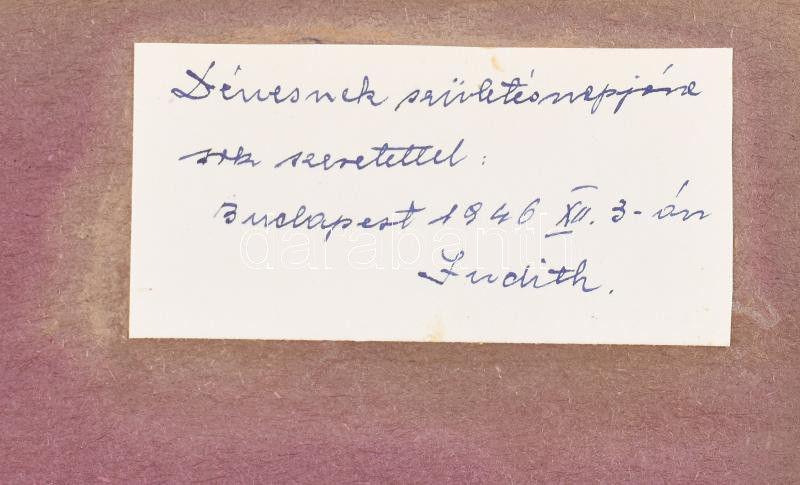 Dénesnek születésnapjára
sok szeretettel:
Budapest 1946 XII. 3-án
darabanth
Judith.